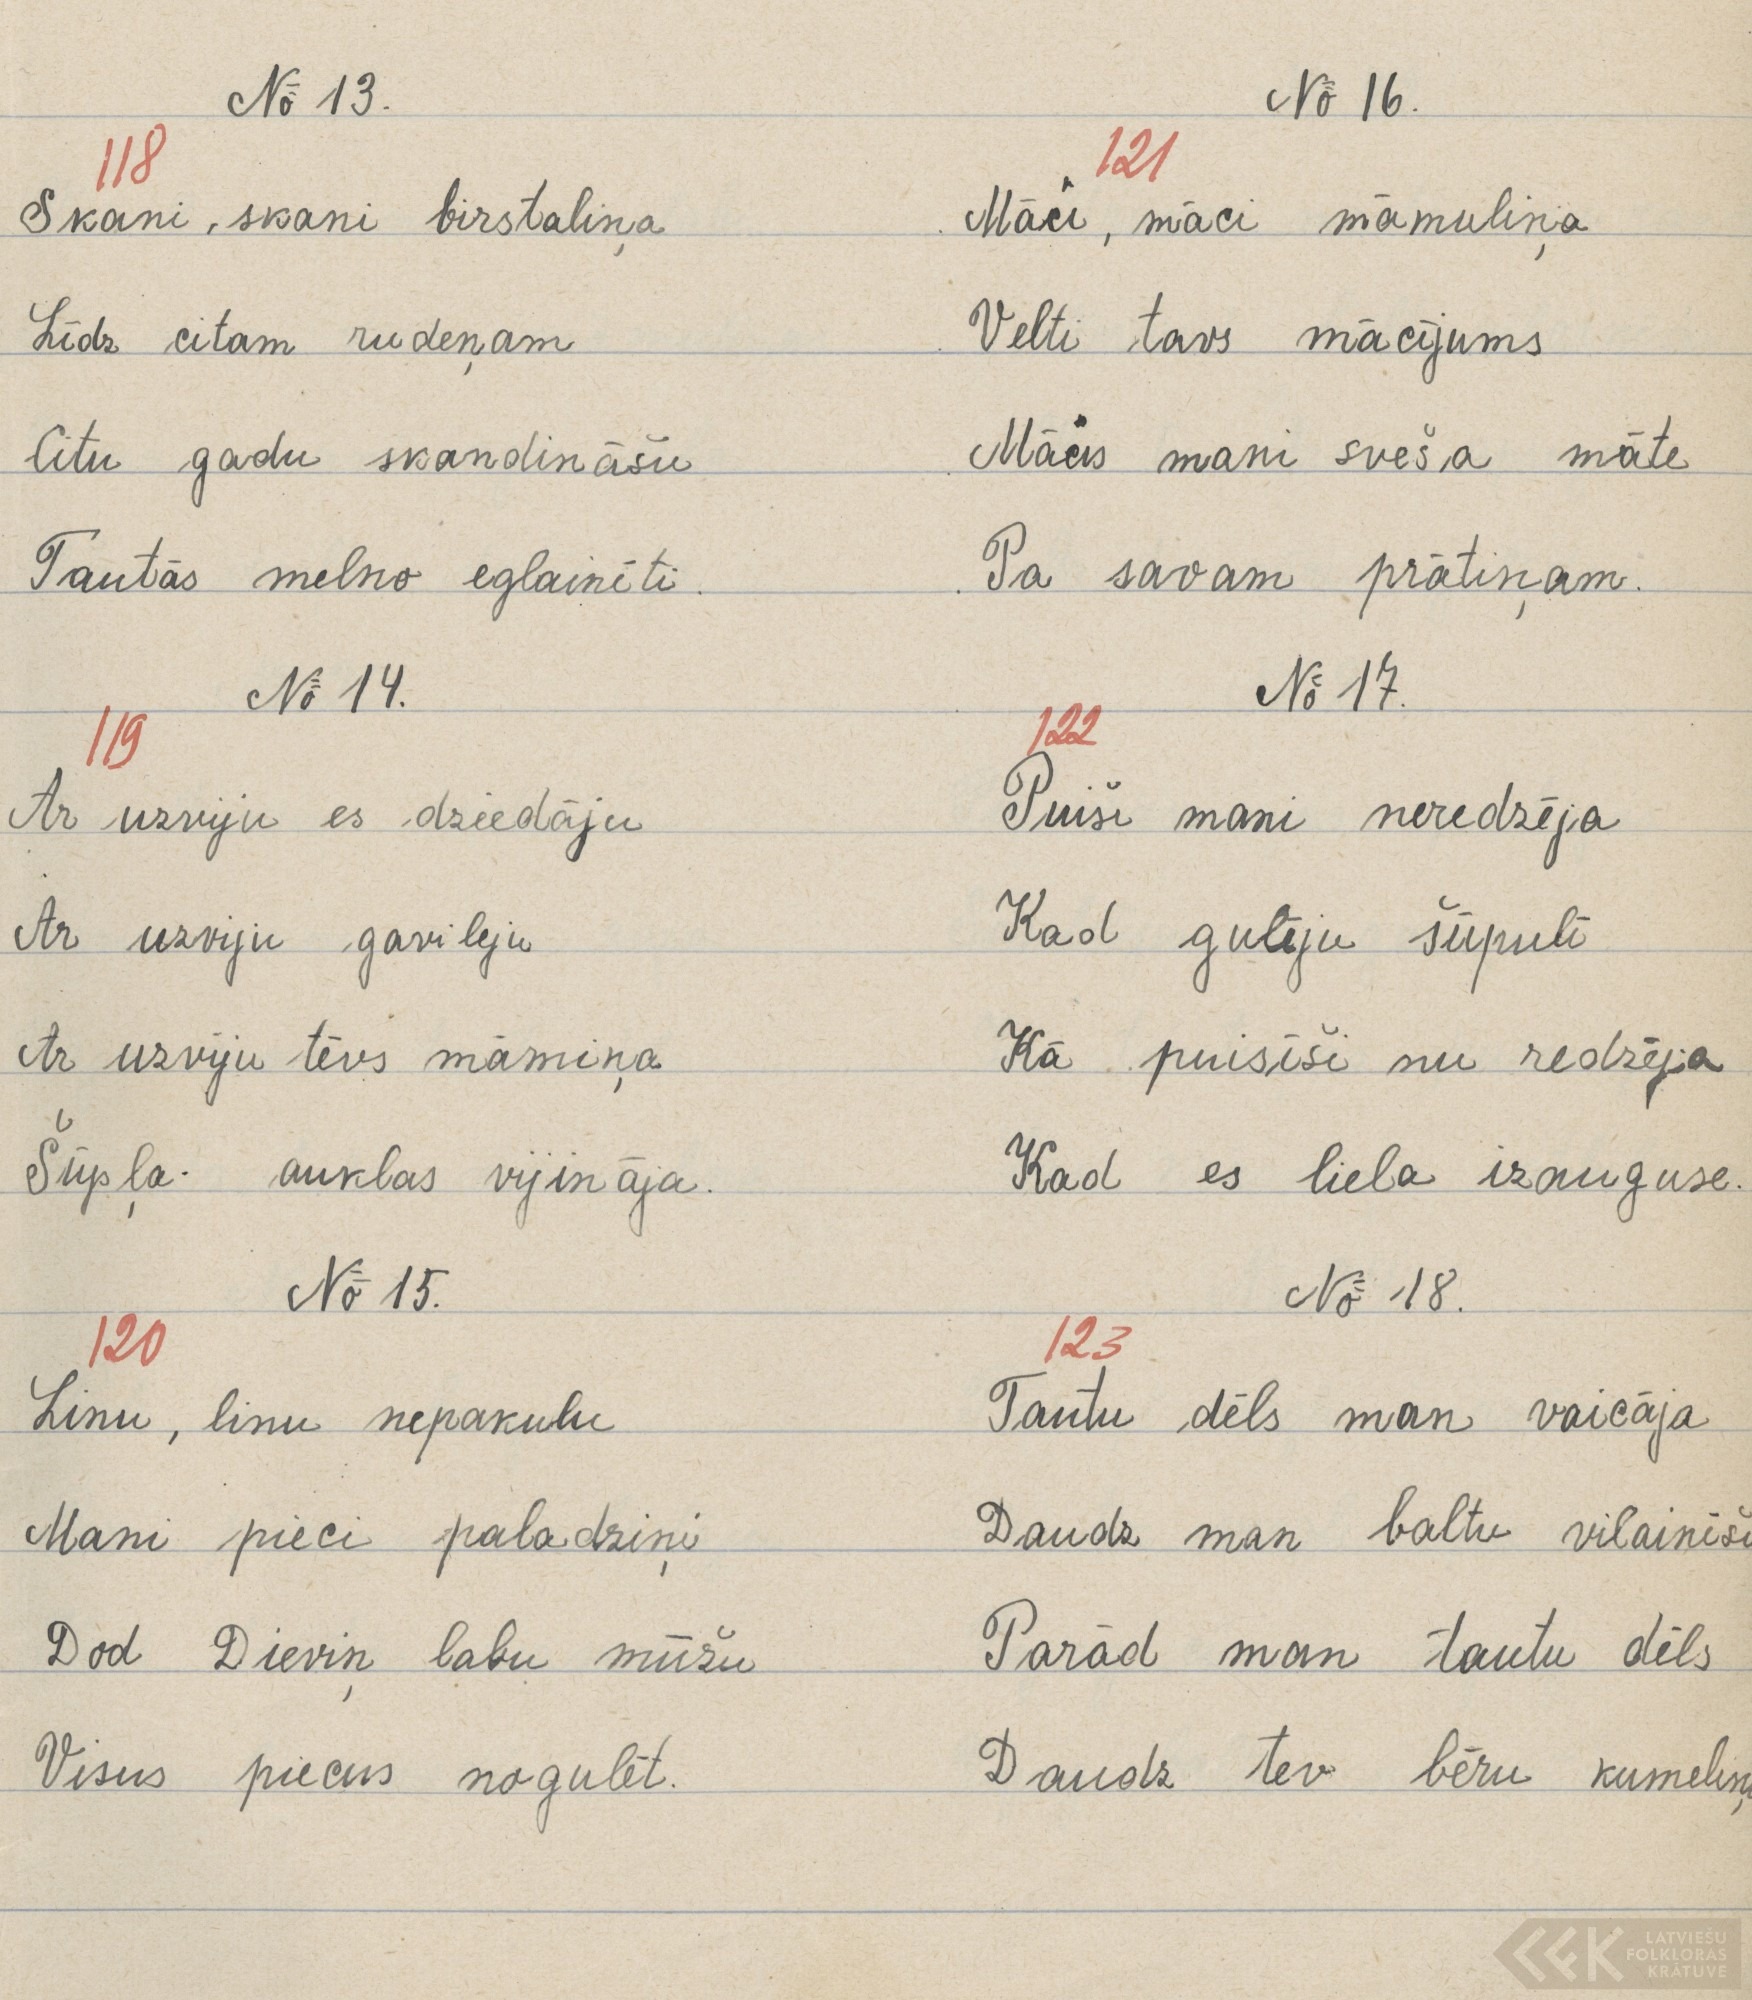 № 13.
118
Skani, skani birstaliņa
Līdz citam rudeņam
Citu gadu skandināšu
Tautās melno eglainīti.
№ 14.
119
Ar uzviju es dziedāju
Ar uzviju gavilēju
Ar uzviju tēvs māmiņa
Šūpļa auklas vijināja.
№ 15.
120
Linu, linu nepakulu
Mani pieci paladziņi
Dod Dieviņ labu mūžu
Visus piecus nogulēt.
№ 16.
121
Māci, māci māmuliņa
Velti tavs mācījums
Mācīs mani sveša māte
Pa savam prātiņam.
№ 17.
122
Puiši mani neredzēja
Kad gulēju šūpulī
Kā puisīši nu redzēja
Kad es liela izauguse.
№ 18.
123
Tautu dēls man vaicāja
Daudz man baltu vilainīšu
Parād man tautu dēls
Daudz tev bēru kumeliņu
LATVIEŠU
FOLKLORAS
KRĀTUVE